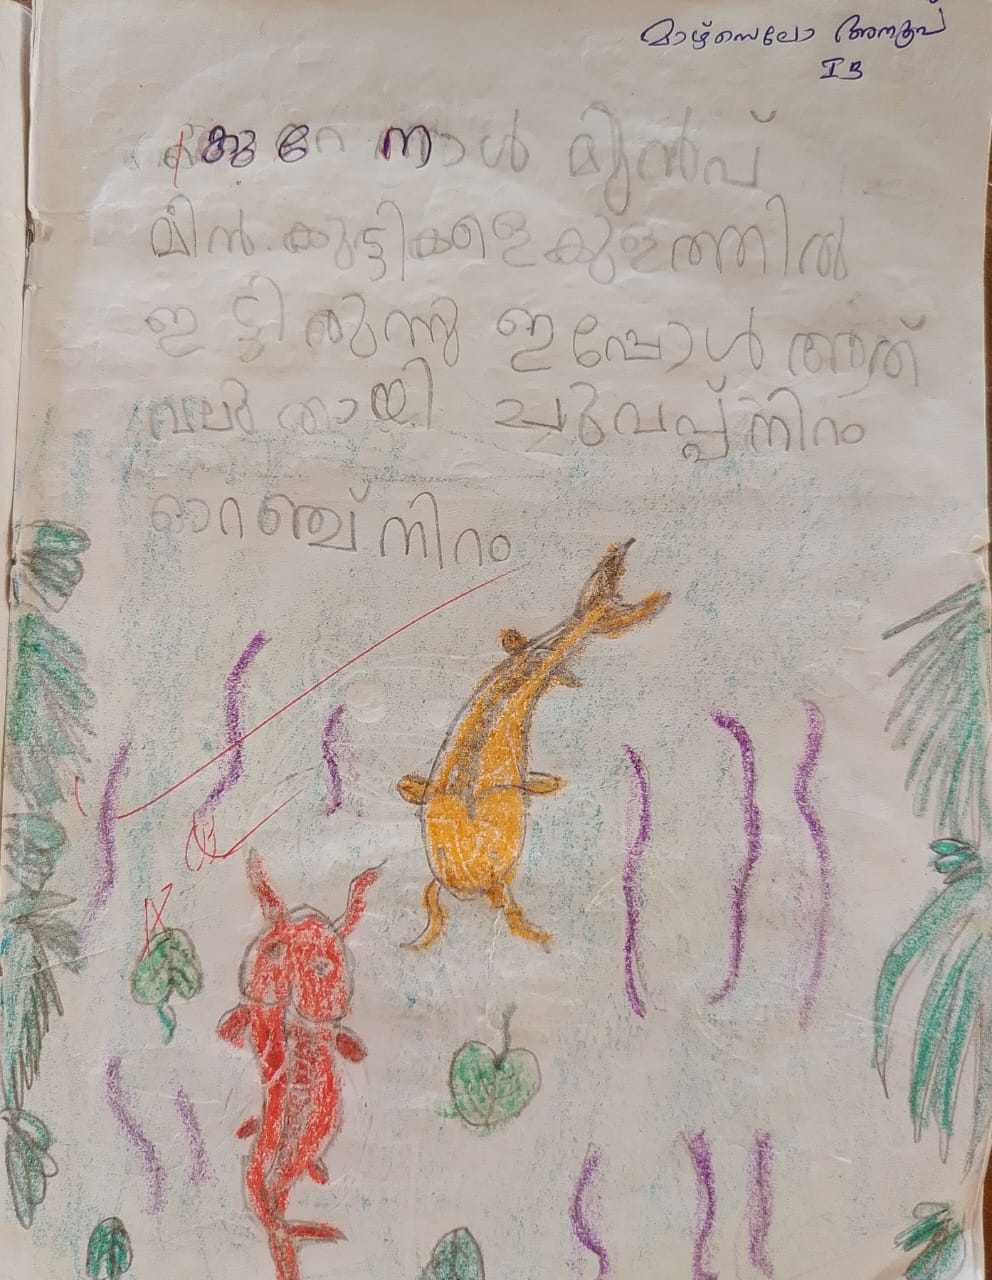 മാഴ്സെലോ അനൂപ്
I B
കുറേ നാൾ മുൻപ്
മീൻ കുട്ടികളെ കുളത്തിൽ
ഇട്ടിരുന്നു ഇപ്പോൾ അത്
വലുതായി ചുവപ്പ് നിറം
ഓറഞ്ച് നിറം